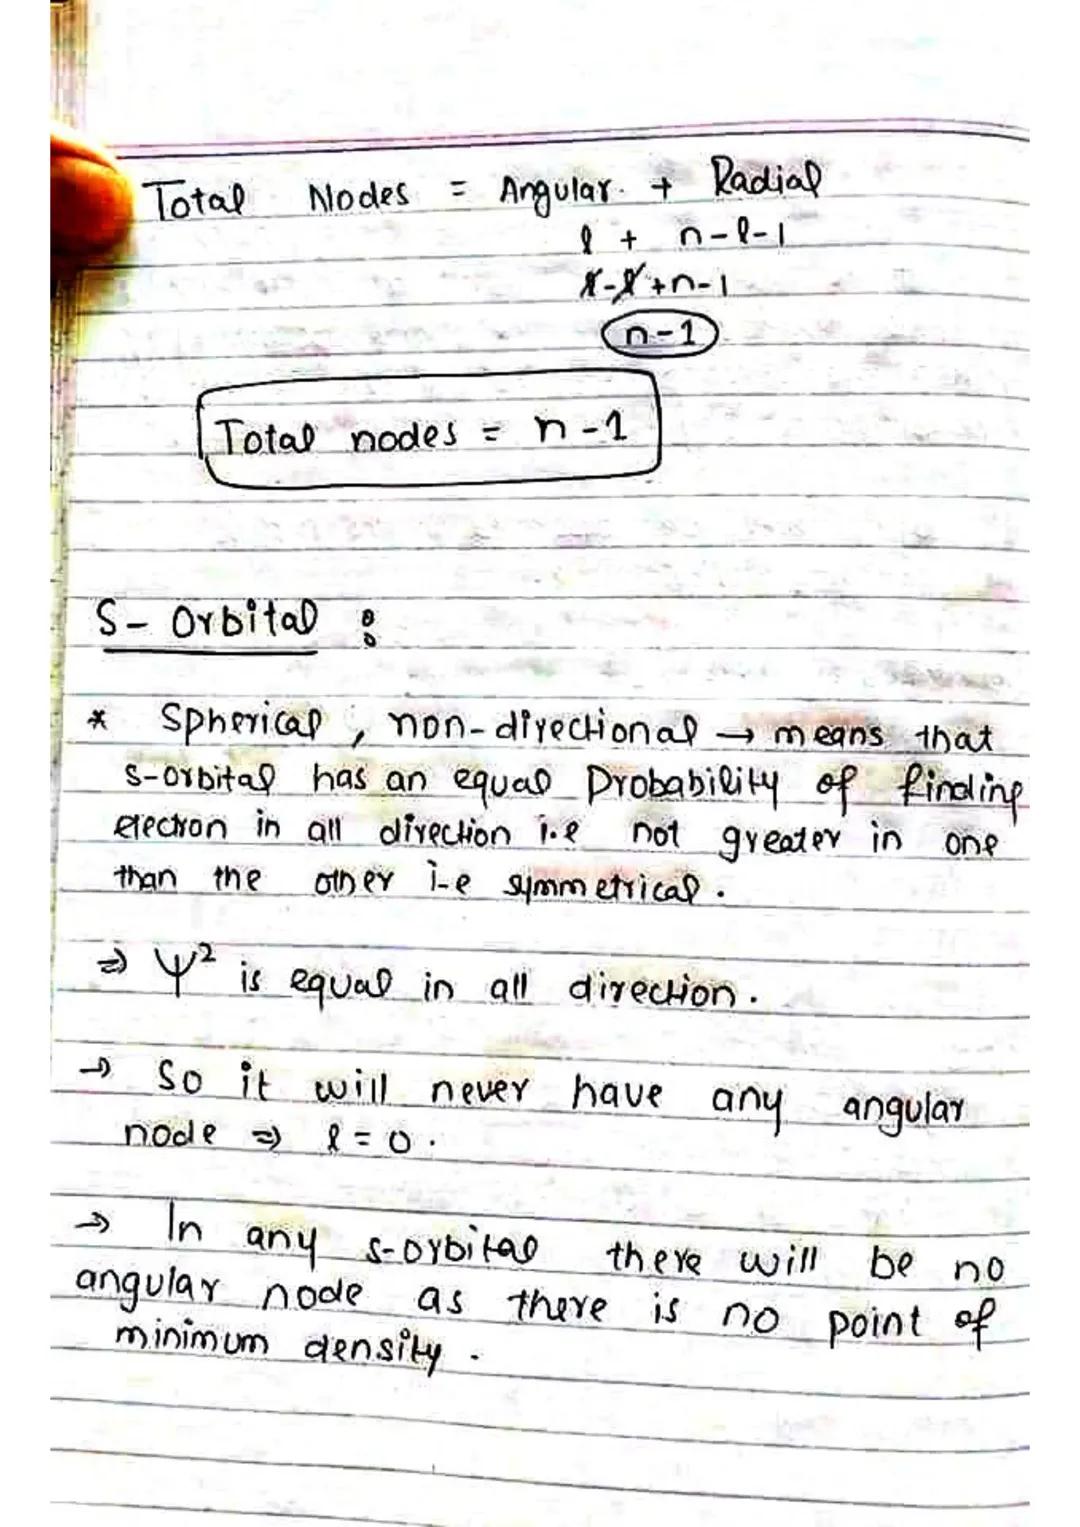 Total Nodes = Angular. + Radial
l + n-l-1
l-l+n-1
n-1
Total nodes = n-1
S- Orbital :
* Spherical, non-directional → means that
s-orbital has an equal Probability of finding
electron in all direction i.e not greater in one
than the other i-e symmetrical.
⇒ Ψ² is equal in all direction.
→ So it will never have any angular
node ⇒ l=0.
→ In any s-orbital there will be no
angular node as there is no point of
minimum density.